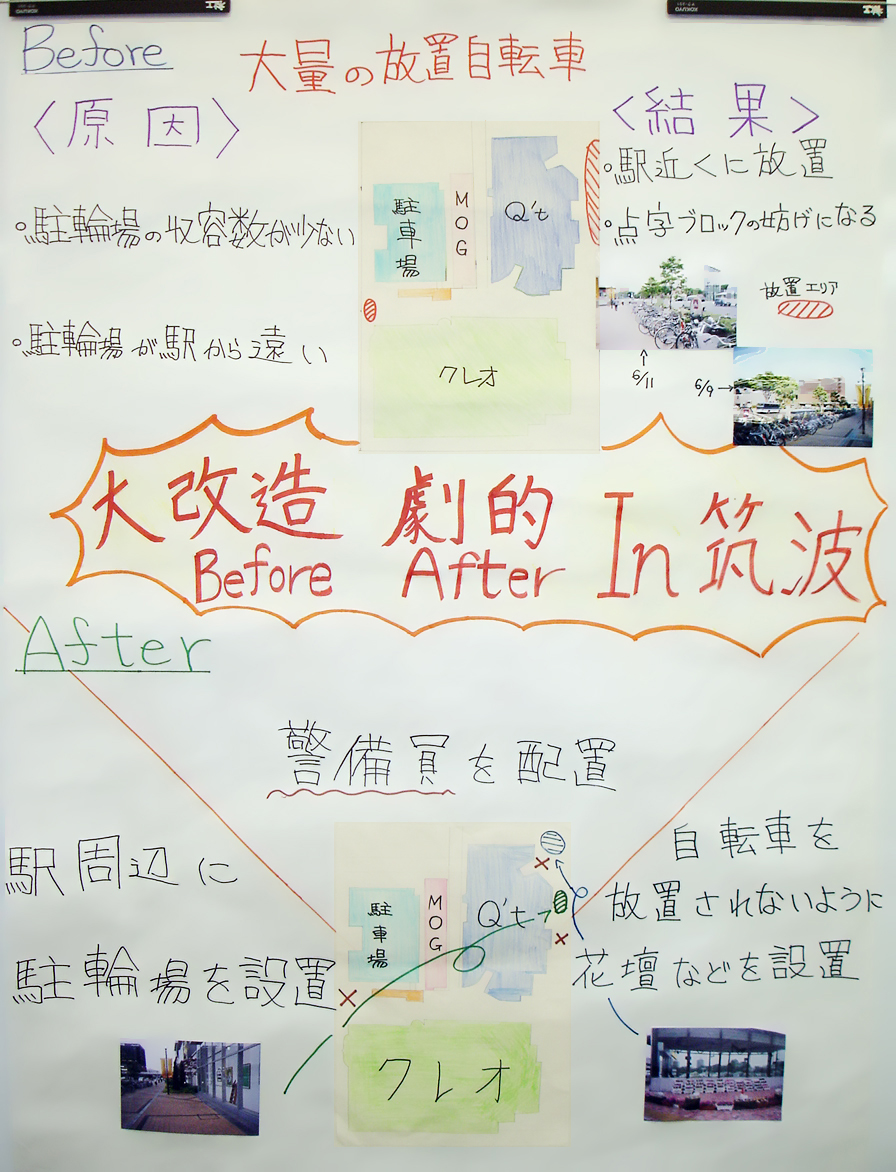 KOKUYO
KOKUYO
Before
大量の放置自転車
〈原因〉
〈結果〉
。駅近くに放置
。点字ブロックの妨げになる
。駐輪場の収容数が少ない
。駐輪場が駅から遠い
駐車場
MOG
Q't
クレオ
放置エリア
6/11
6/9
大改造 劇的 In 筑波
Before After
After
警備員を配置
駅周辺に
駐輪場を設置
自転車を
放置されないように
花壇などを設置
駐車場
MOG
Q't
クレオ